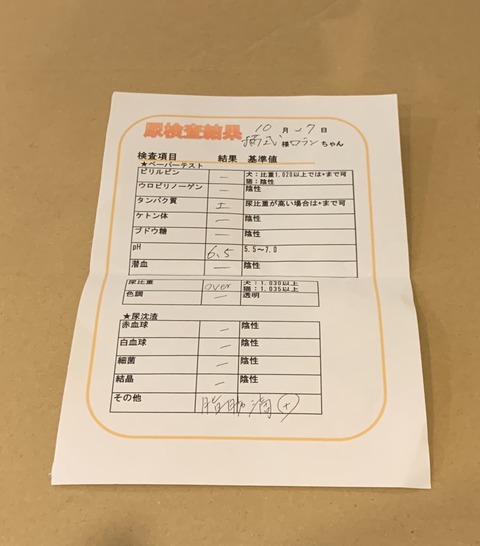 尿検査結果
10月 17日
様 ロランちゃん
検査項目 結果 基準値
★ペーパーテスト
ビリルビン － 犬：比重1,020以上では+まで可
猫：陰性
ウロビリノーゲン － 陰性
タンパク質 ± 尿比重が高い場合は+まで可
ケトン体 － 陰性
ブドウ糖 － 陰性
pH 6.5 5.5～7.0
潜血 － 陰性
尿比重 over 犬：1.030以上
猫：1.035以上
色調 － 透明
★尿沈渣
赤血球 － 陰性
白血球 － 陰性
細菌 － 陰性
結晶 － 陰性
その他 脂肪滴(+)